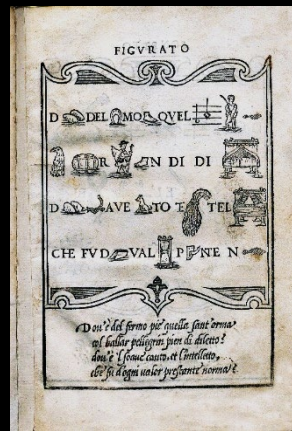 FIGVRATO
D DEL MO QVEL
R N DI DI
D AVE TO T TEL
CHE FVD VAL P NTE N
Dou'è del fermo piè quella sant'orma
col ballar pellegrin pien di diletto?
dou'è 'l soaue canto, et l'intelletto,
che fu d'ogni valor prestante norma?